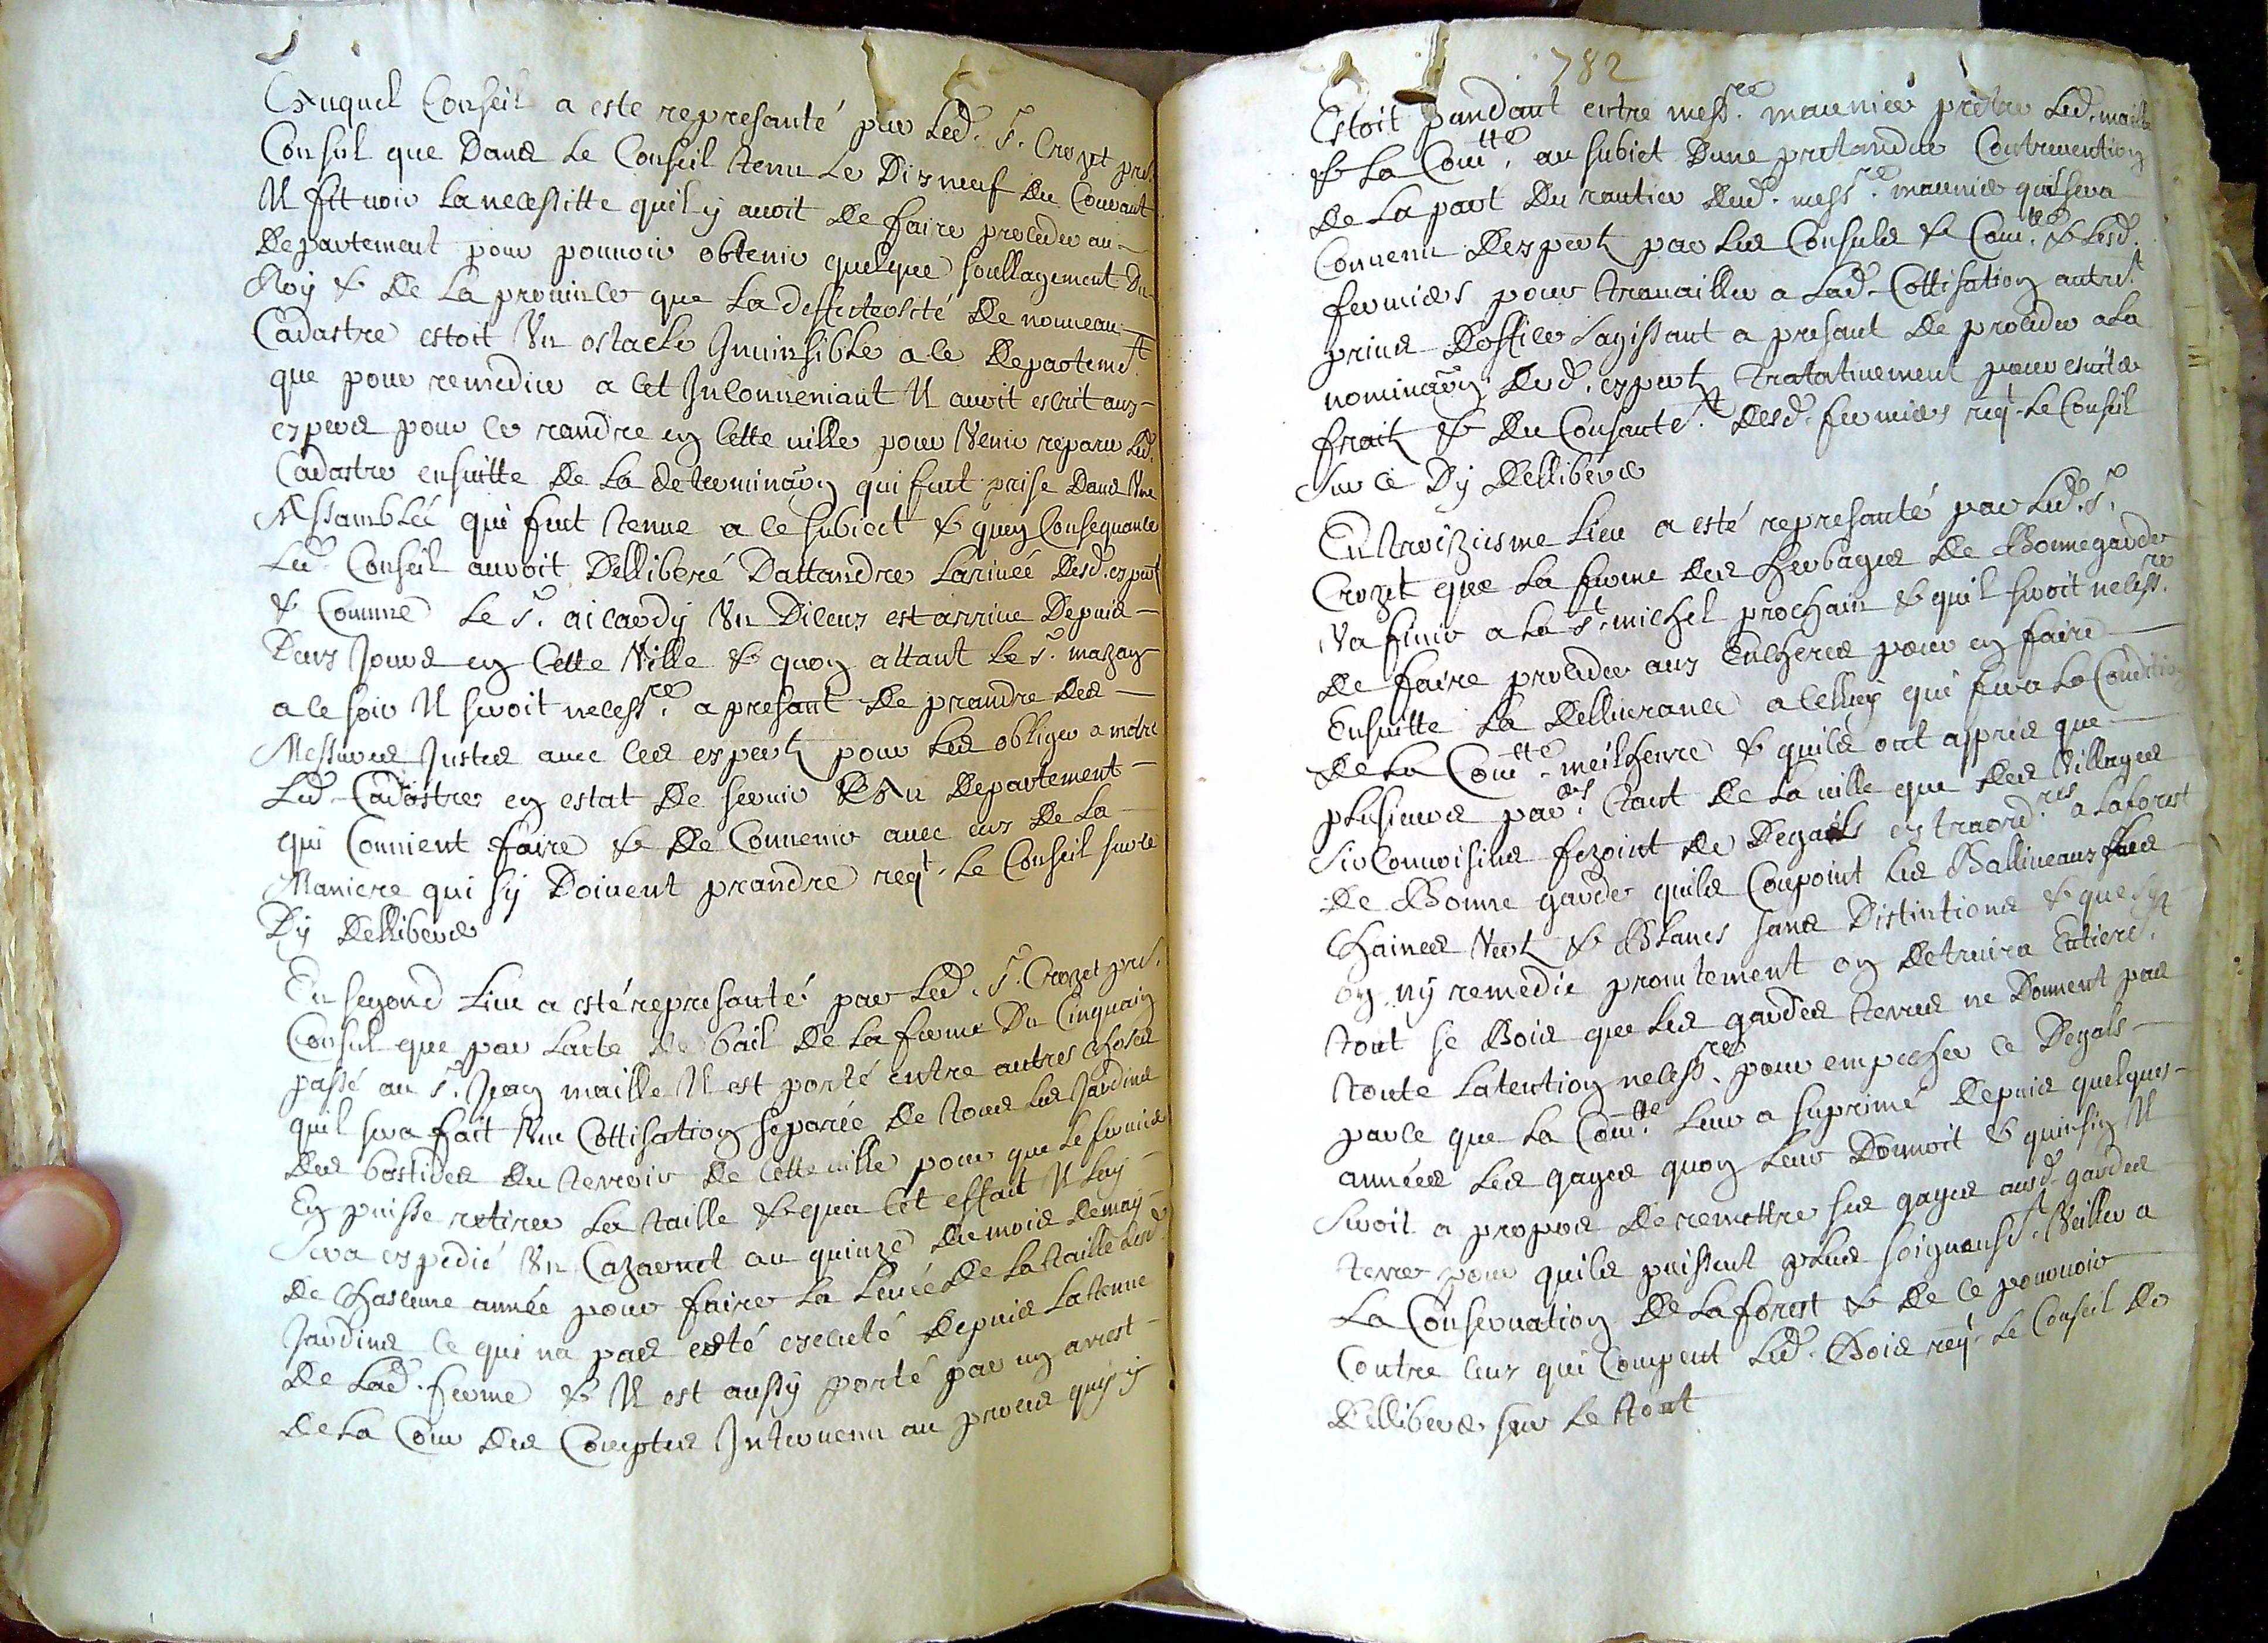 Auquel Conseil a este represanté par led. Sr. Crozet pre.r
Consul que Dans Le Conseil tenu Le Dixneuf du Courant
Il fit voir La necessitte quil y avoit De faire proceder au
Departement pour pouvoir obtenir quelque soullagement Du
Roy & De La province que La deffecteosité De nouveau
Cadastre estoit Un ostacle Invinsible a ce Departemt.
que pour remedier a cet Inconveniant Il avoit escrit aux
expers pour ce randre en Cette ville pour Venir reparer led.
Cadastre ensuitte De La determinaõn qui fut prise Dans Une
Assamblée qui fut tenue a ce subiect & quen Consequance
Led. Conseil auroit Dellibéré Dattandre Larivée Desd. expertz
& Comme Le Sr. ailaudy Un Diceux est arrive Depuis
Deux Jours en Cette Ville & quon attant Le Sr. mazan
a ce soir Il seroit necessre. a presant De prandre Des
Messures Justes avec ces expertz pour Les obliger a metre
Led. Cadastre en estat De servir Au Departement
qui Convient faire & De Convenir avec eux De La
Maniere qui sy Doivent prandre reqt. Le Conseil sur ce
Dy Delliberer
En segond Lieu a esté represanté par Led. Sr. Crozet pre.r
Consul que par Lacte De bail De La ferme Du Cinquain
passé au Sr. Jean maille Il est porté entre autres choses
quil sera fait Une Cottisation separée De tous Les Jardins
des bastides du terroir De Cette ville pour que Le fermier
En puisse retirer La taille & qua Cet effait Il Luy
Sera expedié Un Cazarnet au quinze Du mois De may
De Chascune année pour faire La Levée De La taille Desd.
Jardins ce qui na pas esté executé Depuis Lattenue
De Lad. ferme & Il est aussy porté par un arrest
De La Cour Des Comptes Intervenu au proces quy y
782
Estoit pandant entre messre. maunier prêtre Led. maille
& La Com̃tté. au subiet Dune pretandue Contrevention
De La part Du rantier Dud. messre. maunier quil sera
Convenu Dexpertz par Les Consuls & Com̃.tté & Lesd.
fermiers pour travailler a Lad. Cottisation autremt.
prins Doffice sagissant a presant De proceder a La
nominaõn Desd. expertz tratativement pour esviter
fraitz & Du Consantet. Desd. fermiers reqt. Le Conseil
Sur ce Dy Delliberer
En troizieme Lieu a esté represanté par Led. Sr.
Crozet que La ferme Des herbages De Bonnegarde
Va finir a La St. michel prochain & quil seroit necessre.
De faire proceder aux Encheres pour en faire
Ensuitte La Dellivrance a celluy qui fera La Condition
De La Com̃tté. meilheure & quils ont appris que
plusieurs par.ers tant De La ville que Des Villages
Circonvoisins fezoint De Degats extraordres. a La forest
De Bonne garde quils Coupoint Les Balliveaux Les
Chaines Vertz & Blancs sans Distinctions & que sy
on ny remedie promtement on Detruira Entieremt.
tout se Bois que Les gardes terres ne Donnent pas
toute Latention necessre. pour empecher ce Degats
parce que La Com̃tté. Leur a suprimé Depuis quelques
années Les gages quon Leur Donnoit & quinsin Il
Seroit a propos De remettre ses gages ausd. gardes
terres pour quils puissent plus soigneusemt. Veiller a
La Conservation De La forest & De ce pourvoir
Contre ceux qui Coupent Led. Bois reqt. Le Conseil De
Delliberer sur Le tout